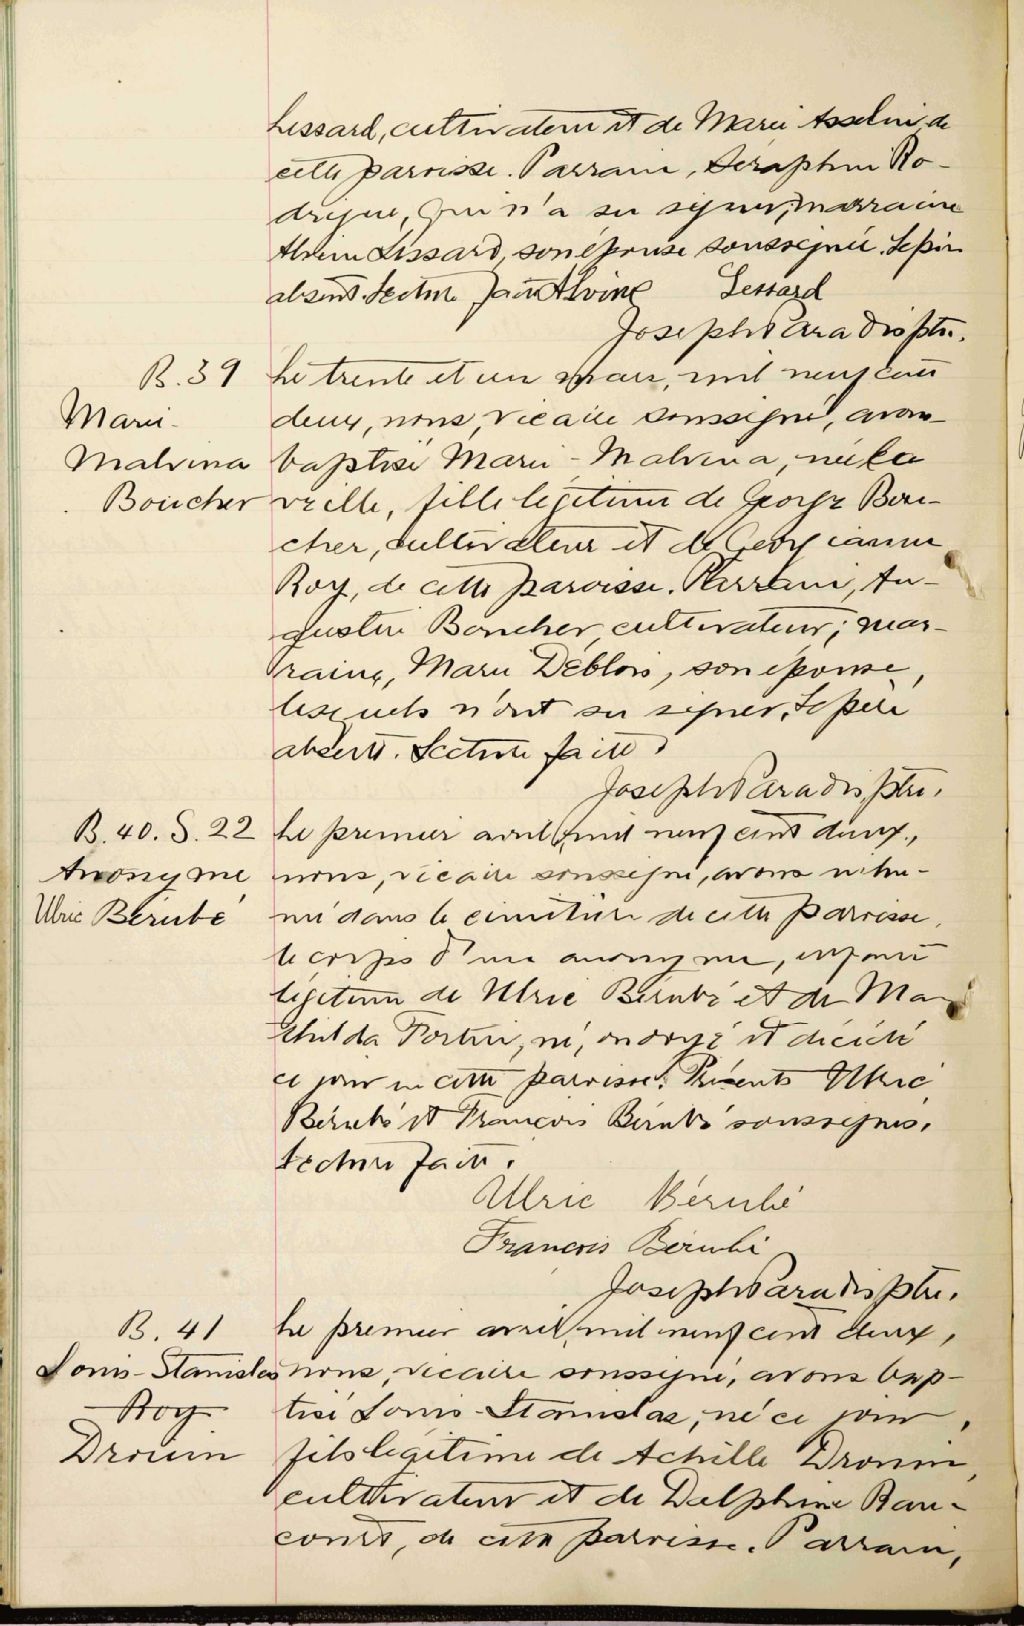 Lessard, cultivateur et de Marie Asselin, de
cette paroisse. Parrain, Séraphin Ro-
drigue, qui n'a su signer; marraine
Alvine Lessard, son épouse soussignée. Le père
absent. Lecture faite Alvine Lessard
Joseph Paradis ptre.
B. 39
Marie-
Malvina
Boucher
Le trente et un mars, mil neuf cent
deux, nous, vicaire soussigné, avons
baptisé Marie-Malvina, née la
veille, fille légitime de George Bou-
cher, cultivateur et de Georgianna
Roy, de cette paroisse. Parrain, Au-
gustin Boucher, cultivateur; mar-
raine, Marie Deblois, son épouse,
lesquels n'ont su signer. Le père
absent. Lecture faite.
Joseph Paradis, ptre.
B. 40. S. 22
Anonyme
Ulric Bérubé
Le premier avril, mil neuf cent deux,
nous, vicaire soussigné, avons inhu-
mé dans le cimetière de cette paroisse,
le corps d'un anonyme, enfant
légitime de Ulric Bérubé et de Ma-
thilda Fortin, né, ondoyé et décédé
ce jour en cette paroisse. Présents Ulric
Bérubé et François Bérubé soussignés.
Lecture faite.
Ulric Bérubé
François Bérubé
Joseph Paradis ptre.
B. 41
Louis-Stanislas
Roy
Drouin
Le premier avril, mil neuf cent deux,
nous, vicaire soussigné, avons bap-
tisé Louis-Stanislas, né ce jour,
fils légitime de Achille Drouin,
cultivateur et de Delphine Ran-
court, de cette paroisse. Parrain,